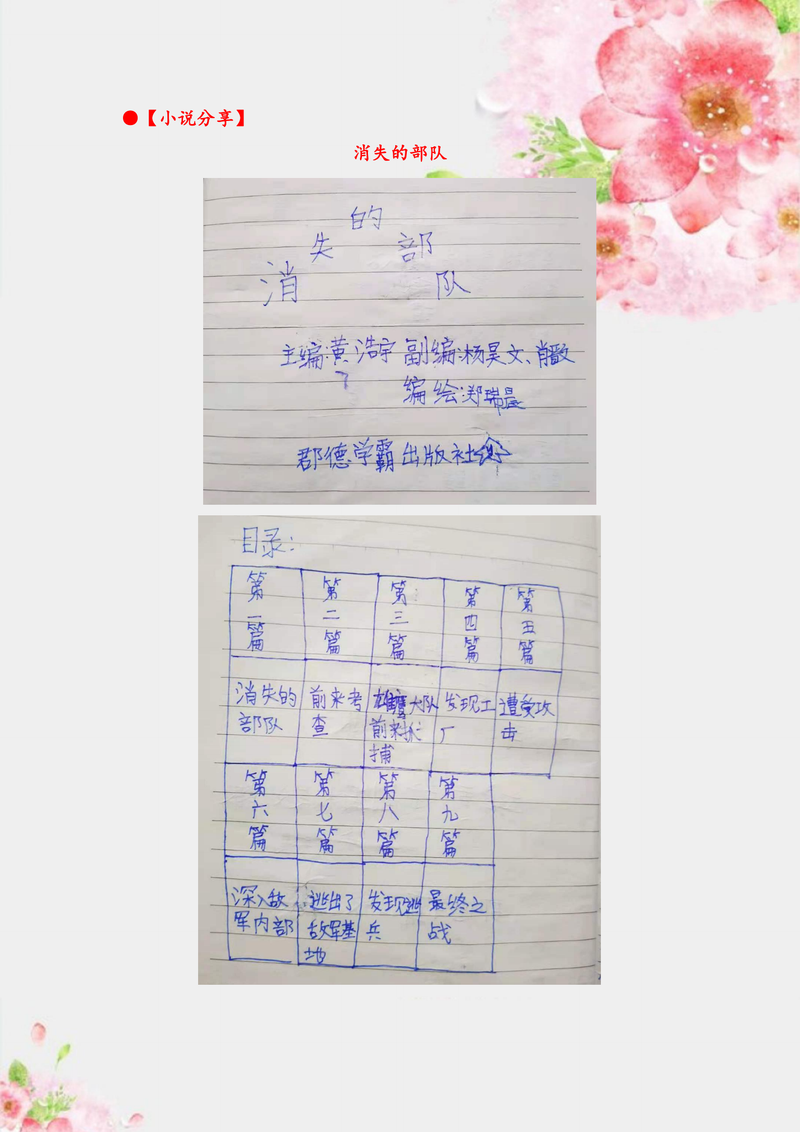 ●【小说分享】
消失的部队
消失的部队
主编:黄浩宇 副编:杨昊文、肖
编绘:郑瑞晨
郡德学霸出版社
目录:
第一篇 第二篇 第三篇 第四篇 第五篇
消失的部队 前来考查 雄鹰大队前来抓捕 发现工厂 遭受攻击
第六篇 第七篇 第八篇 第九篇
深入敌军内部 逃出了敌军基地 发现逃兵 最终之战